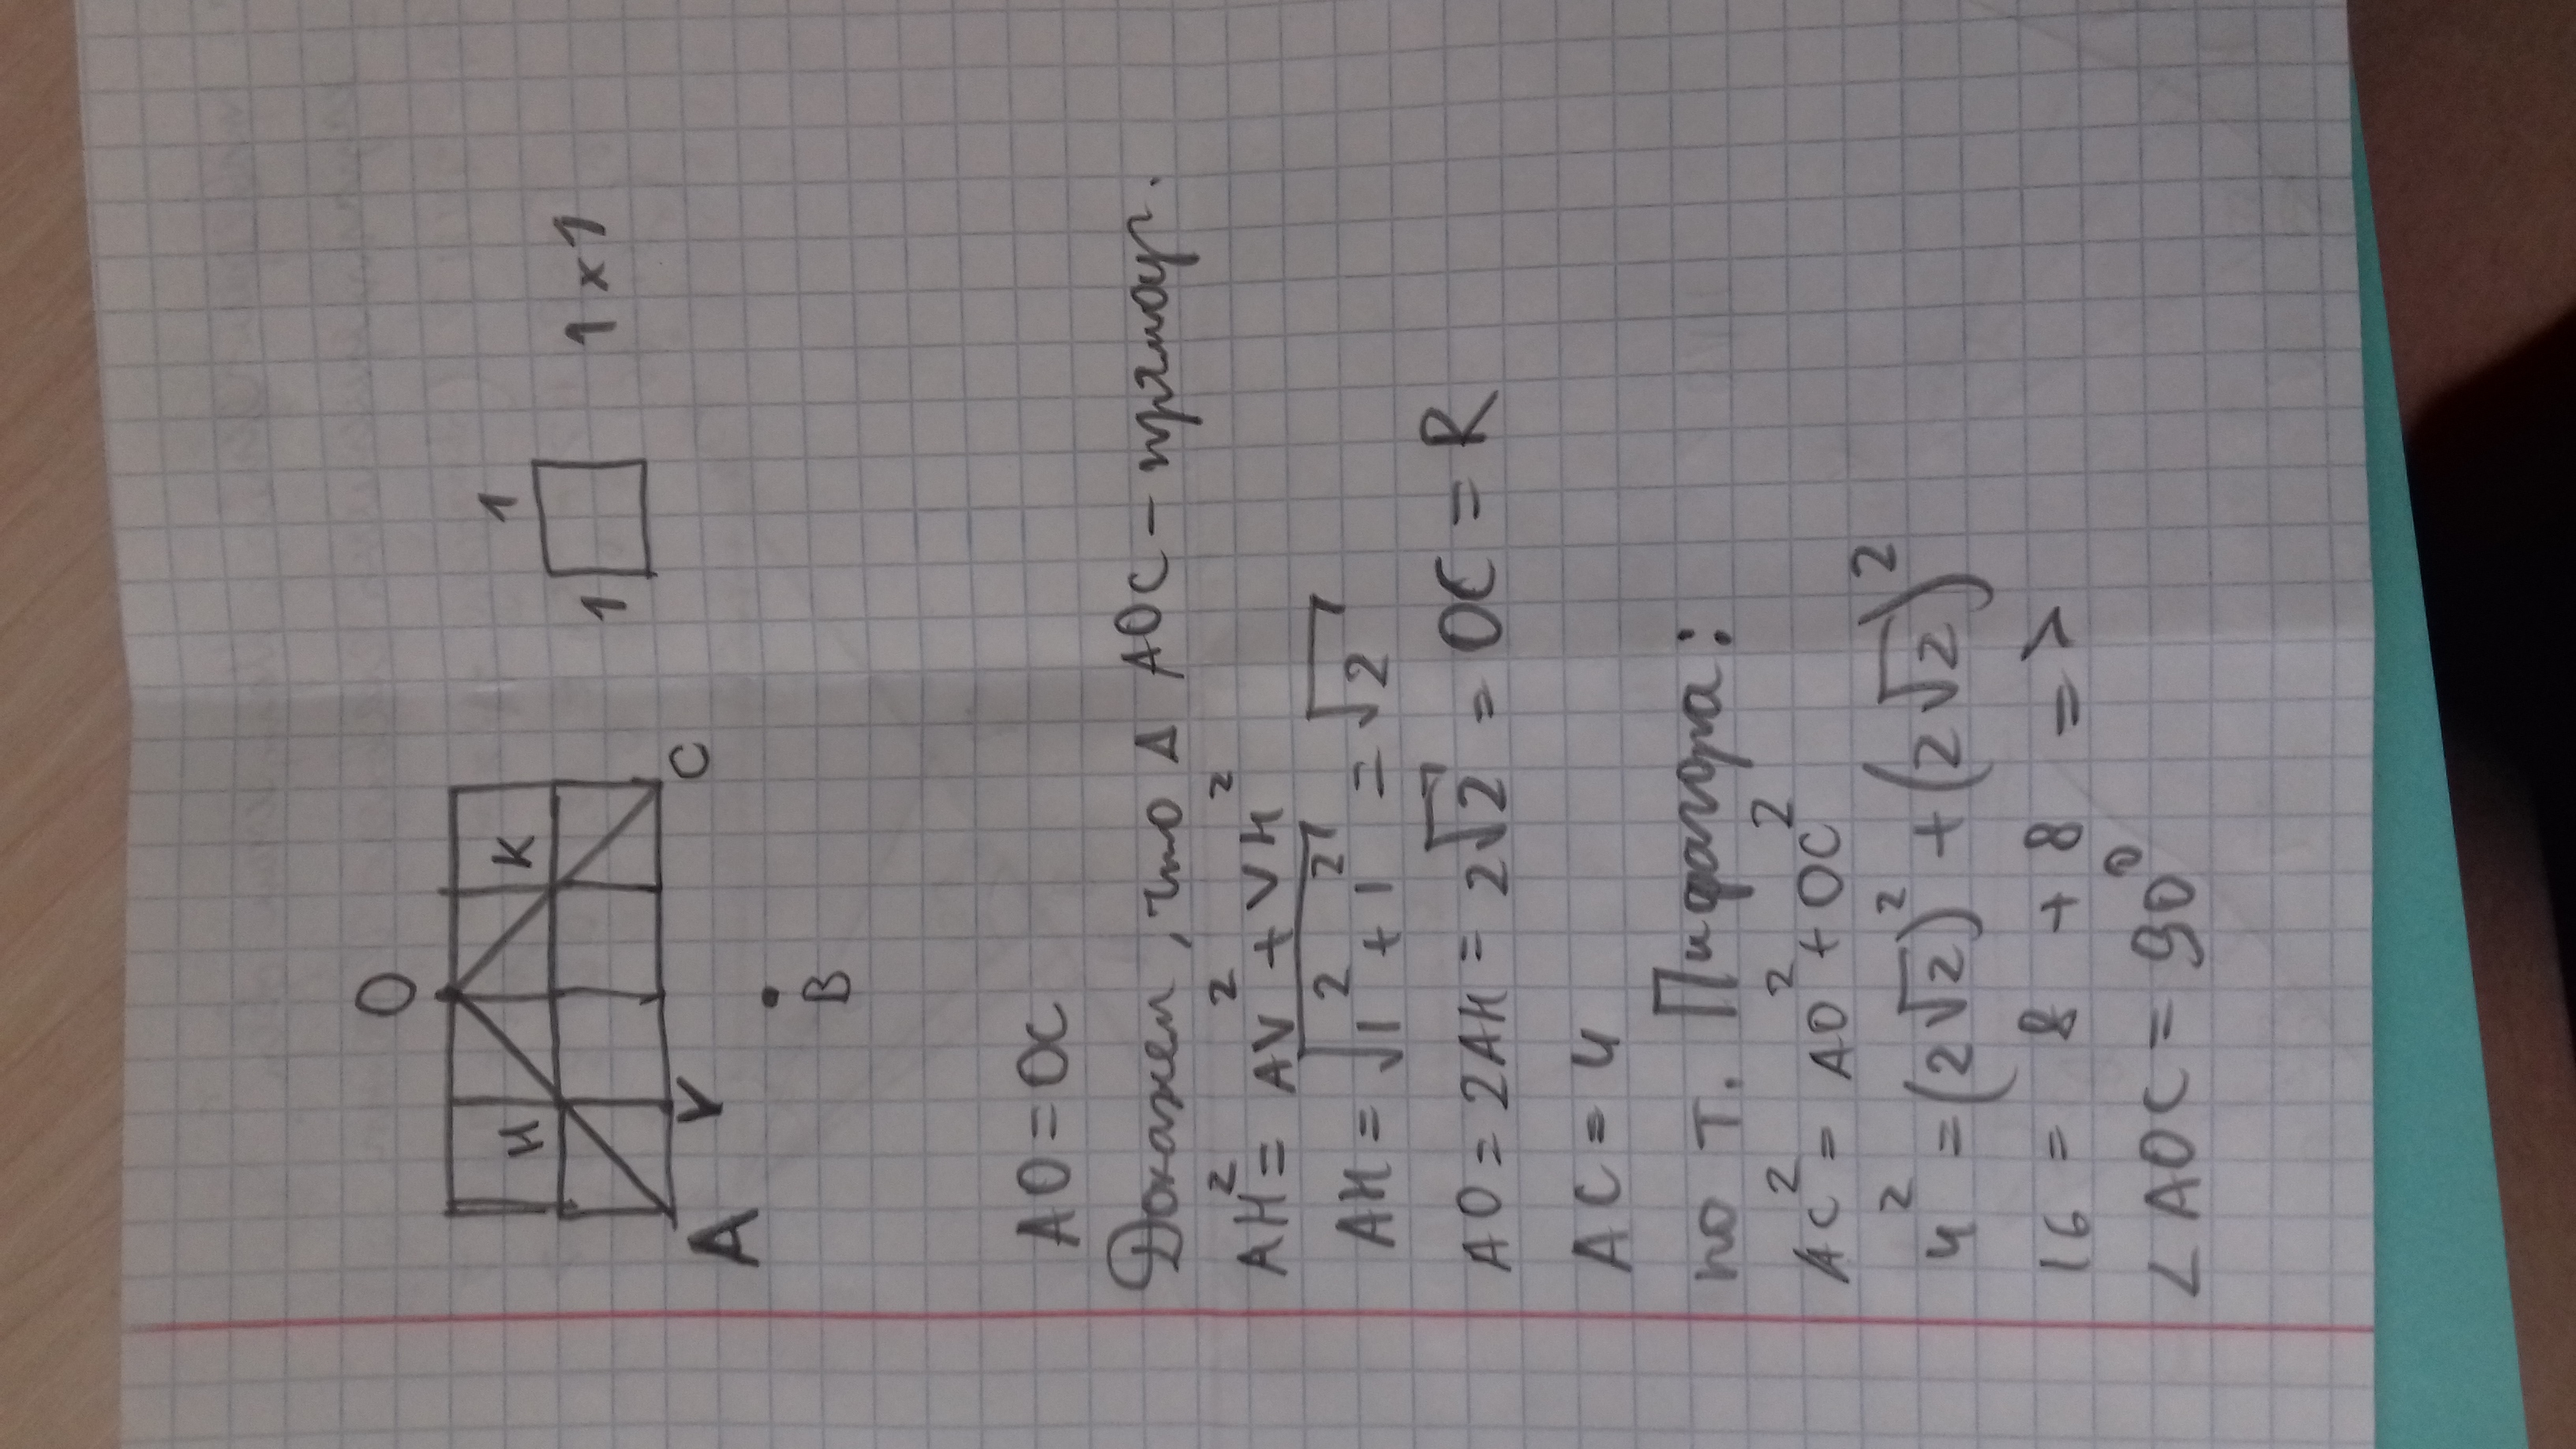 O
1
1
1 x 1
H
K
A
V
C
B
AO = OC
Докажем, что Δ AOC - прямоуг.
AH² = AV² + VH²
AH = √1² + 1² = √2
AO = 2AH = 2√2 = OC = R
AC = 4
по Т. Пифагора:
AC² = AO² + OC²
4² = (2√2)² + (2√2)²
16 = 8 + 8 =>
∠AOC = 90°